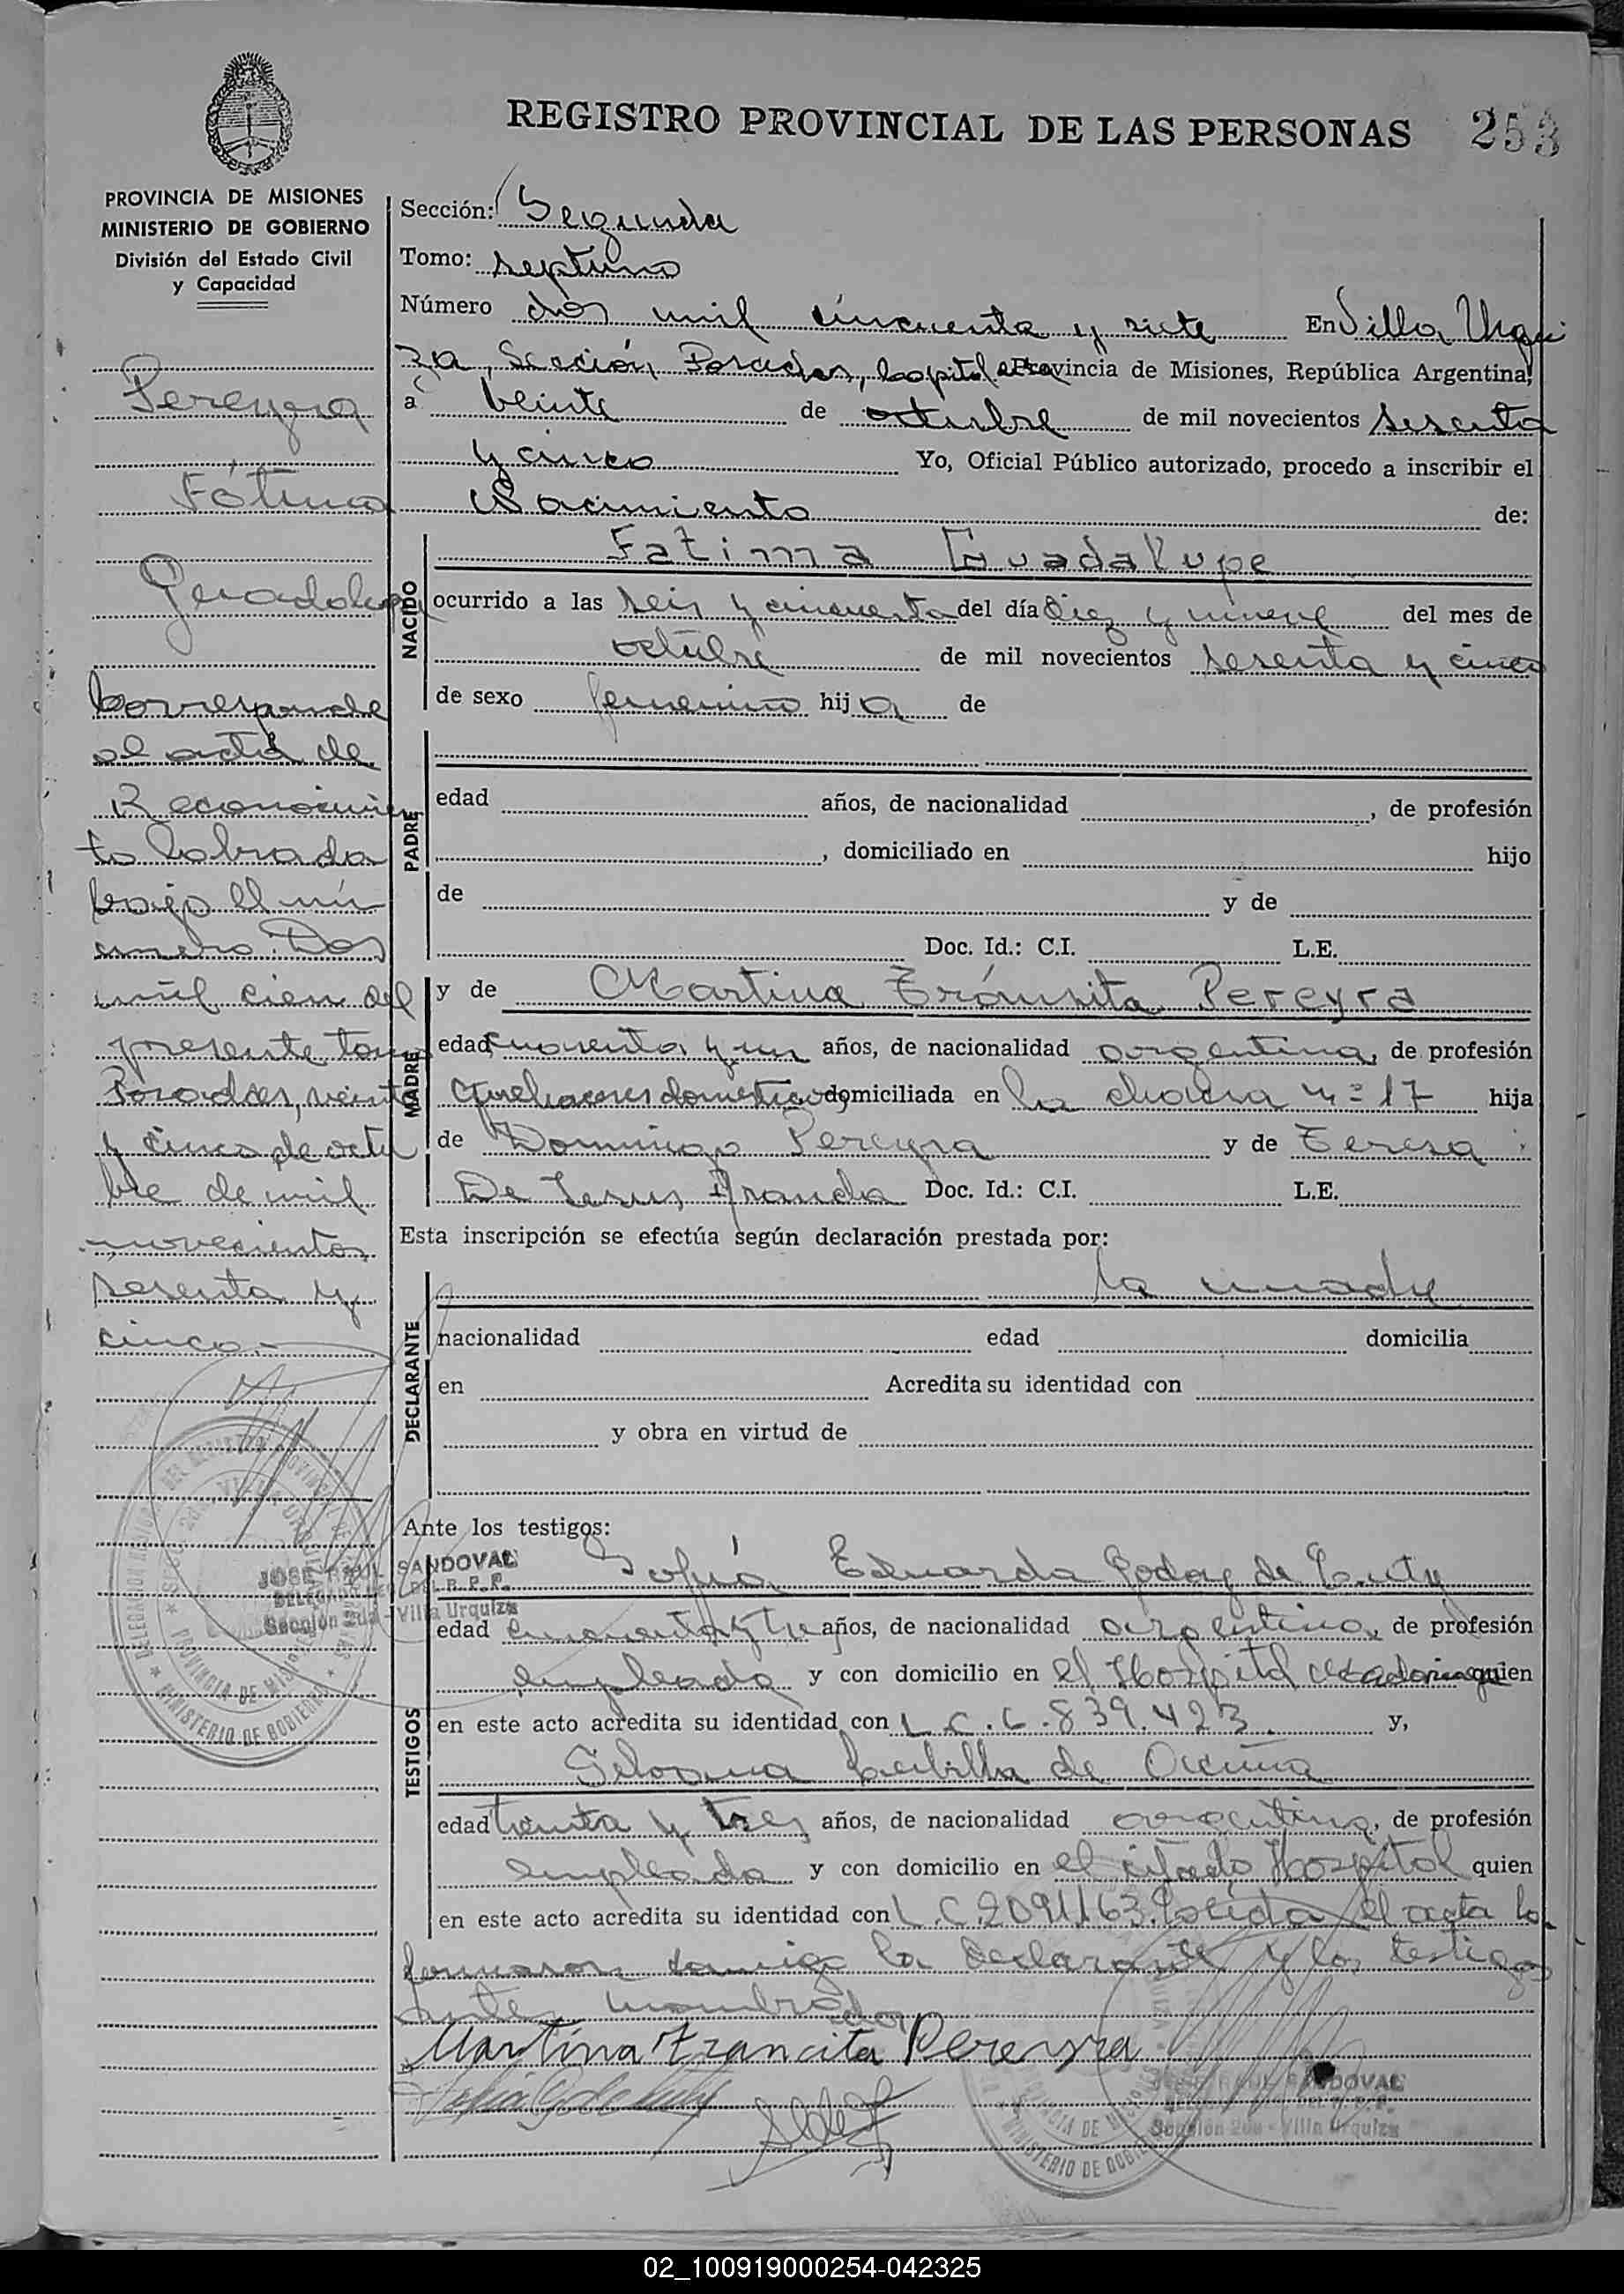 REGISTRO PROVINCIAL DE LAS PERSONAS 253
PROVINCIA DE MISIONES
MINISTERIO DE GOBIERNO
División del Estado Civil
y Capacidad
Pereyra
Fátima
Guadalupe
Corresponde
al acta de
Reconocimien
to labrada
bajo el nú
mero Dos
mil cien del
presente tomo
Posadas, veinte
y cinco de octu
bre de mil
novecientos
sesenta y
cinco.-
JOSE RAUL SANDOVAL
DELEGADO DEL R. P. P.
Sección 2da - Villa Urquiza
Sección: Segunda
Tomo: septimo
Número dos mil cincuenta y siete En Villa Urqui
za, Sección Posadas, Capital Provincia de Misiones, República Argentina,
a veinte de octubre de mil novecientos sesenta
y cinco Yo, Oficial Público autorizado, procedo a inscribir el
Nacimiento de:
NACIDO
Fatima Guadalupe
ocurrido a las seis y cincuenta del día diez y nueve del mes de
octubre de mil novecientos sesenta y cinco
de sexo femenino hija de
PADRE
edad años, de nacionalidad , de profesión
, domiciliado en hijo
de y de
Doc. Id.: C.I. L.E.
MADRE
y de Martina Tránsita Pereyra
edad cuarenta y un años, de nacionalidad argentina, de profesión
Quehaceres domesticos domiciliada en la chacra nº 17 hija
de Domingo Pereyra y de Teresa
De Jesus Aranda Doc. Id.: C.I. L.E.
Esta inscripción se efectúa según declaración prestada por:
DECLARANTE
la madre
nacionalidad edad domicilia
en Acredita su identidad con
y obra en virtud de
Ante los testigos:
TESTIGOS
Sofía Eduarda Godoy de
edad y tres años, de nacionalidad argentina, de profesión
empleada y con domicilio en el Hospital Madariaga quien
en este acto acredita su identidad con L.C. 6.839.423. y,
de
edad treinta y tres años, de nacionalidad argentina, de profesión
empleada y con domicilio en el citado Hospital quien
en este acto acredita su identidad con L.C. 2091163. Leida el acta la
firmaron conmigo la declarante y los testigos
antes nombrados
Martina trancita Pereyra
JOSE RAUL SANDOVAL
DELEGADO DEL R. P. P.
Sección 2da - Villa Urquiza
02_100919000254-042325